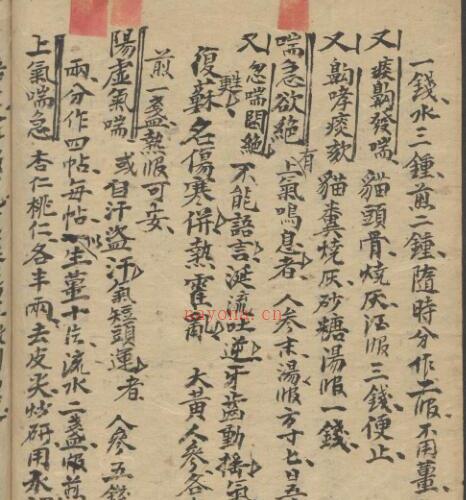 一錢、水三鍾、煎二鍾、隨時分作二服、不用薑、
又痰齁發喘 貓頭骨、燒灰、酒服三錢、便止、
又齁哮痰欬 貓糞燒灰、砂糖湯服一錢、
喘急欲絕 有 上氣鳴息者、人參末、湯服方寸匕、日五
又忽喘悶絕 不能語言、涎流吐逆、牙齒動搖、氣
甦
復蘇、名傷寒併熱霍 大黃人參各
煎一盞、熱服可安、
陽虛氣喘、或自汗盜汗、氣短頭運者、人參五錢
兩、分作四帖、每帖以生薑十片、流水二盞、煎
上氣喘急 杏仁桃仁、各半兩、去皮尖炒研、用水
nayona.cn